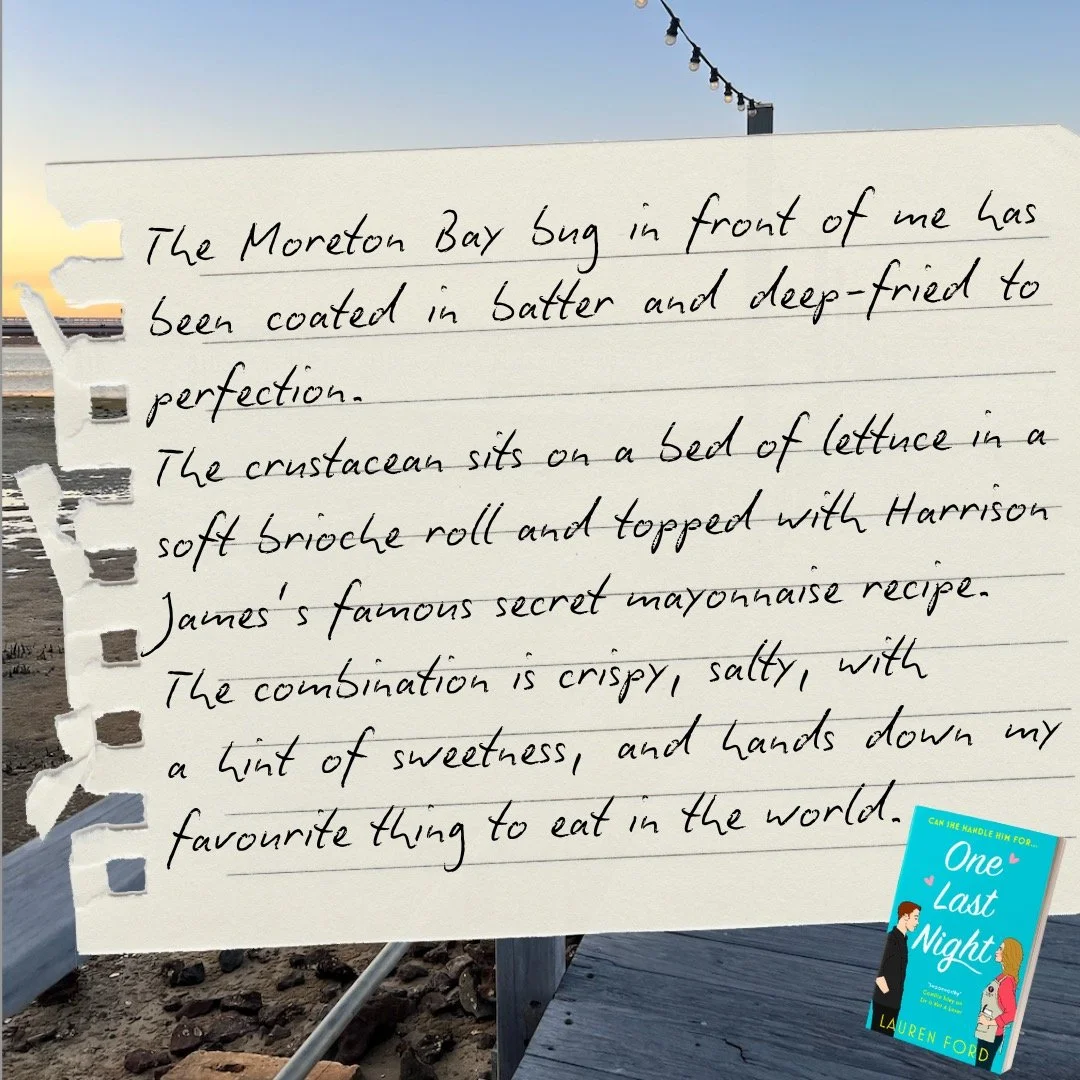 The Moreton Bay bug in front of me has
been coated in batter and deep-fried to
perfection.
The crustacean sits on a bed of lettuce in a
soft brioche roll and topped with Harrison
James's famous secret mayonnaise recipe.
The combination is crispy, salty, with
a hint of sweetness, and hands down my
favourite thing to eat in the world.
CAN SHE HANDLE HIM FOR...
One
Last
Night
LAUREN FORD